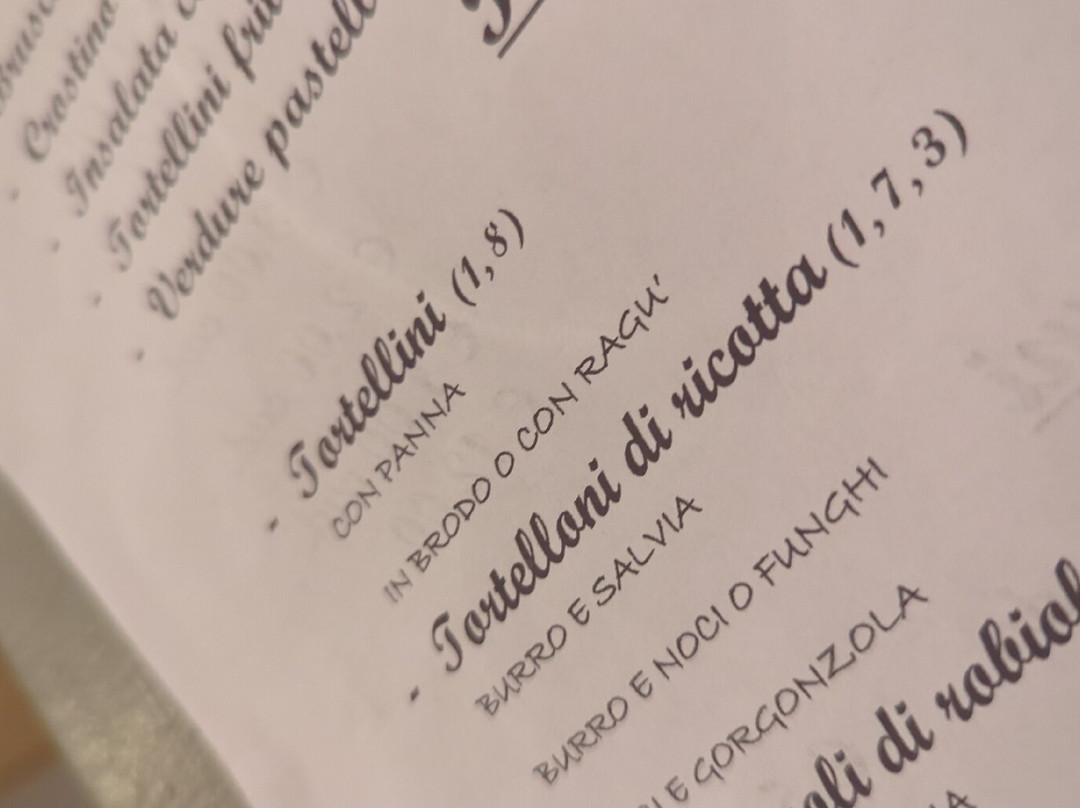 Crostino
- Insalata
- Tortellini
- Verdure
- Tortellini (1, 8)
CON PANNA
IN BRODO O CON RAGU'
- Tortelloni di ricotta (1, 7, 3)
BURRO E SALVIA
BURRO E NOCI O FUNGHI
E GORGONZOLA
di